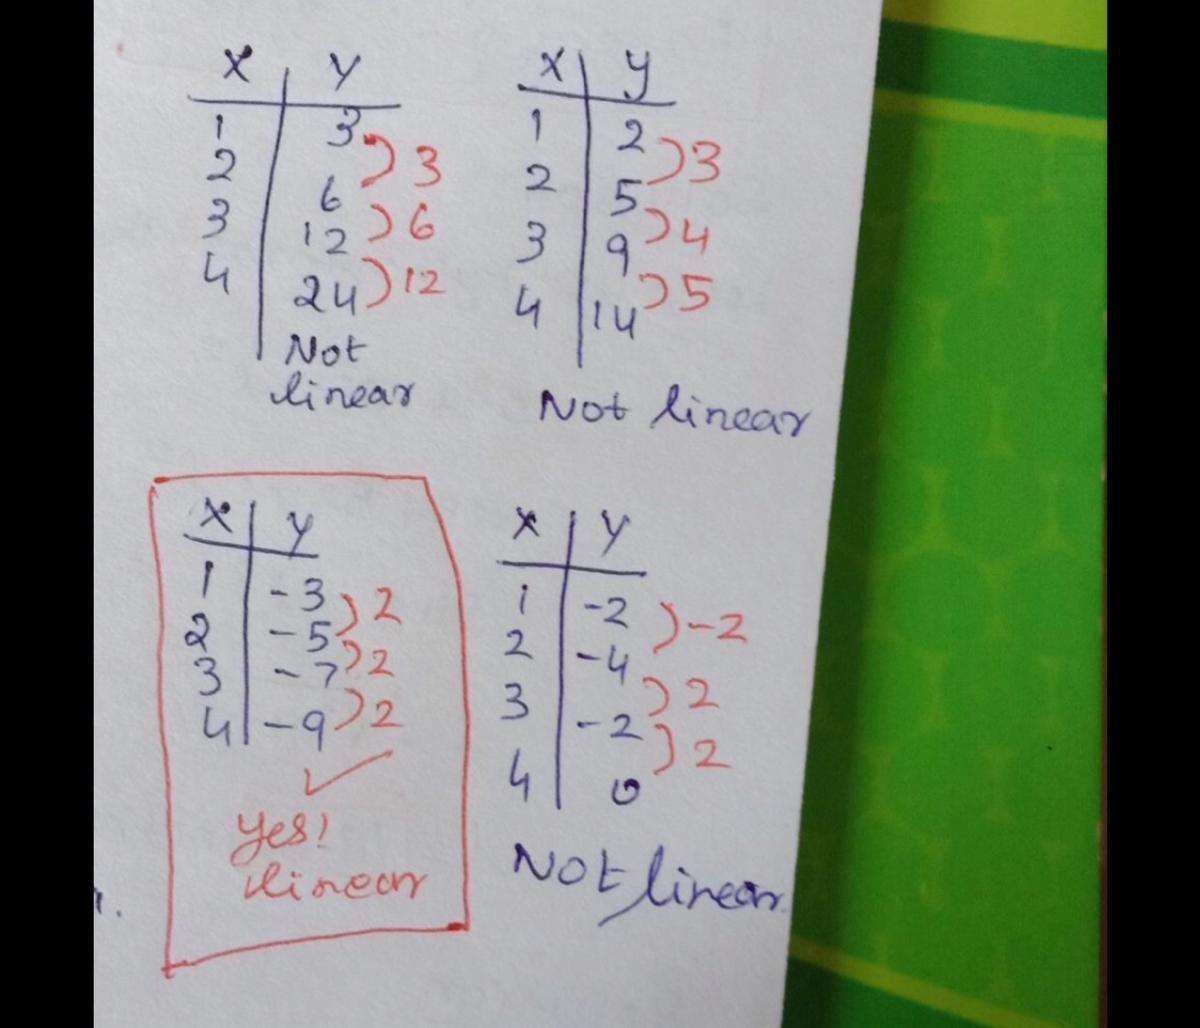 X Y
1 3
2 6
3 12
4 24
) 3
) 6
) 12
Not
linear
X y
1 2
2 5
3 9
4 14
) 3
) 4
) 5
Not linear
X y
1 -3
2 -5
3 -7
4 -9
) 2
) 2
) 2
✓
yes!
linear
X Y
1 -2
2 -4
3 -2
4 0
) -2
) 2
) 2
Not linear